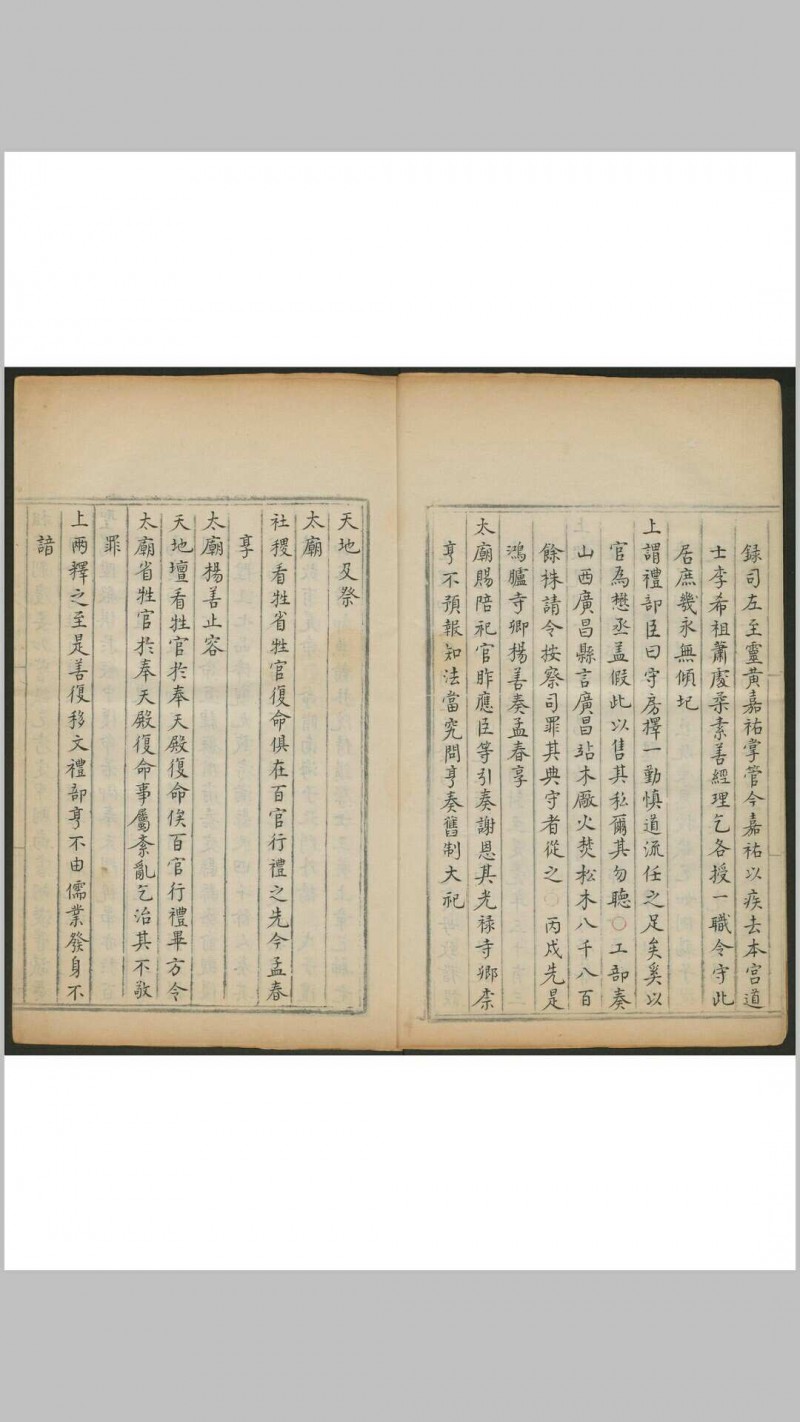 録司左至靈黄嘉祐掌管今嘉祐以疾去本宫道
士李希祖蕭處柔素善經理乞各授一職令守此
居庶幾永無傾圮
上謂禮部臣曰守房擇一勤慎道流任之足矣奚以
官為懋丞盖假此以售其私爾其勿聽○工部奏
山西廣昌縣言廣昌站木厰火焚松木八千八百
餘株請令按察司罪其典守者從之○丙戍先是
鴻臚寺卿楊善奏孟春享
太廟賜陪祀官胙應臣等引奏謝恩其光禄寺卿柰
亨不預報知法當究問亨奏舊制大祀
天地及祭
太廟
社稷看牲省牲官復命俱在百官行禮之先今孟春
享
太廟楊善止容
天地壇看牲官於奉天殿復命俟百官行禮畢方令
太廟省牲官於奉天殿復命事屬紊亂乞治其不敬
罪
上兩釋之至是善復移文禮部亨不由儒業發身不
諳